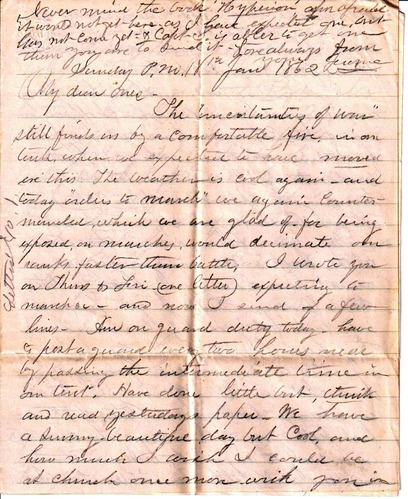 Never mind the book Hyperion am afraid
it wont get here, as I have expected one, but
has not come yet - & Capt is able to get one
them you are to send it - for always from
your
Sunday P.M. 19th Jan 1862
My dear Ones -
The "uncertainties of war"
still finds us by a comfortable fire, in our
tent, when we expected to have moved
ere this. The weather is cool again - and
today "orders to march" we again counter-
manded, which we are glad of - for being
exposed, on marches, would decimate our
ranks faster than battle, I wrote you
on Thurs & Fri (one letter) expecting to
march - and now I send of a few
lines - Am on guard duty today - have
to post a guard every two hours near
by passing the intermediate time in
our tent. Have done little but, think
and read yesterdays paper. We have
a sunny beautiful day but Cool, and
how much I wish I could be
at church one morn with you in
Letter